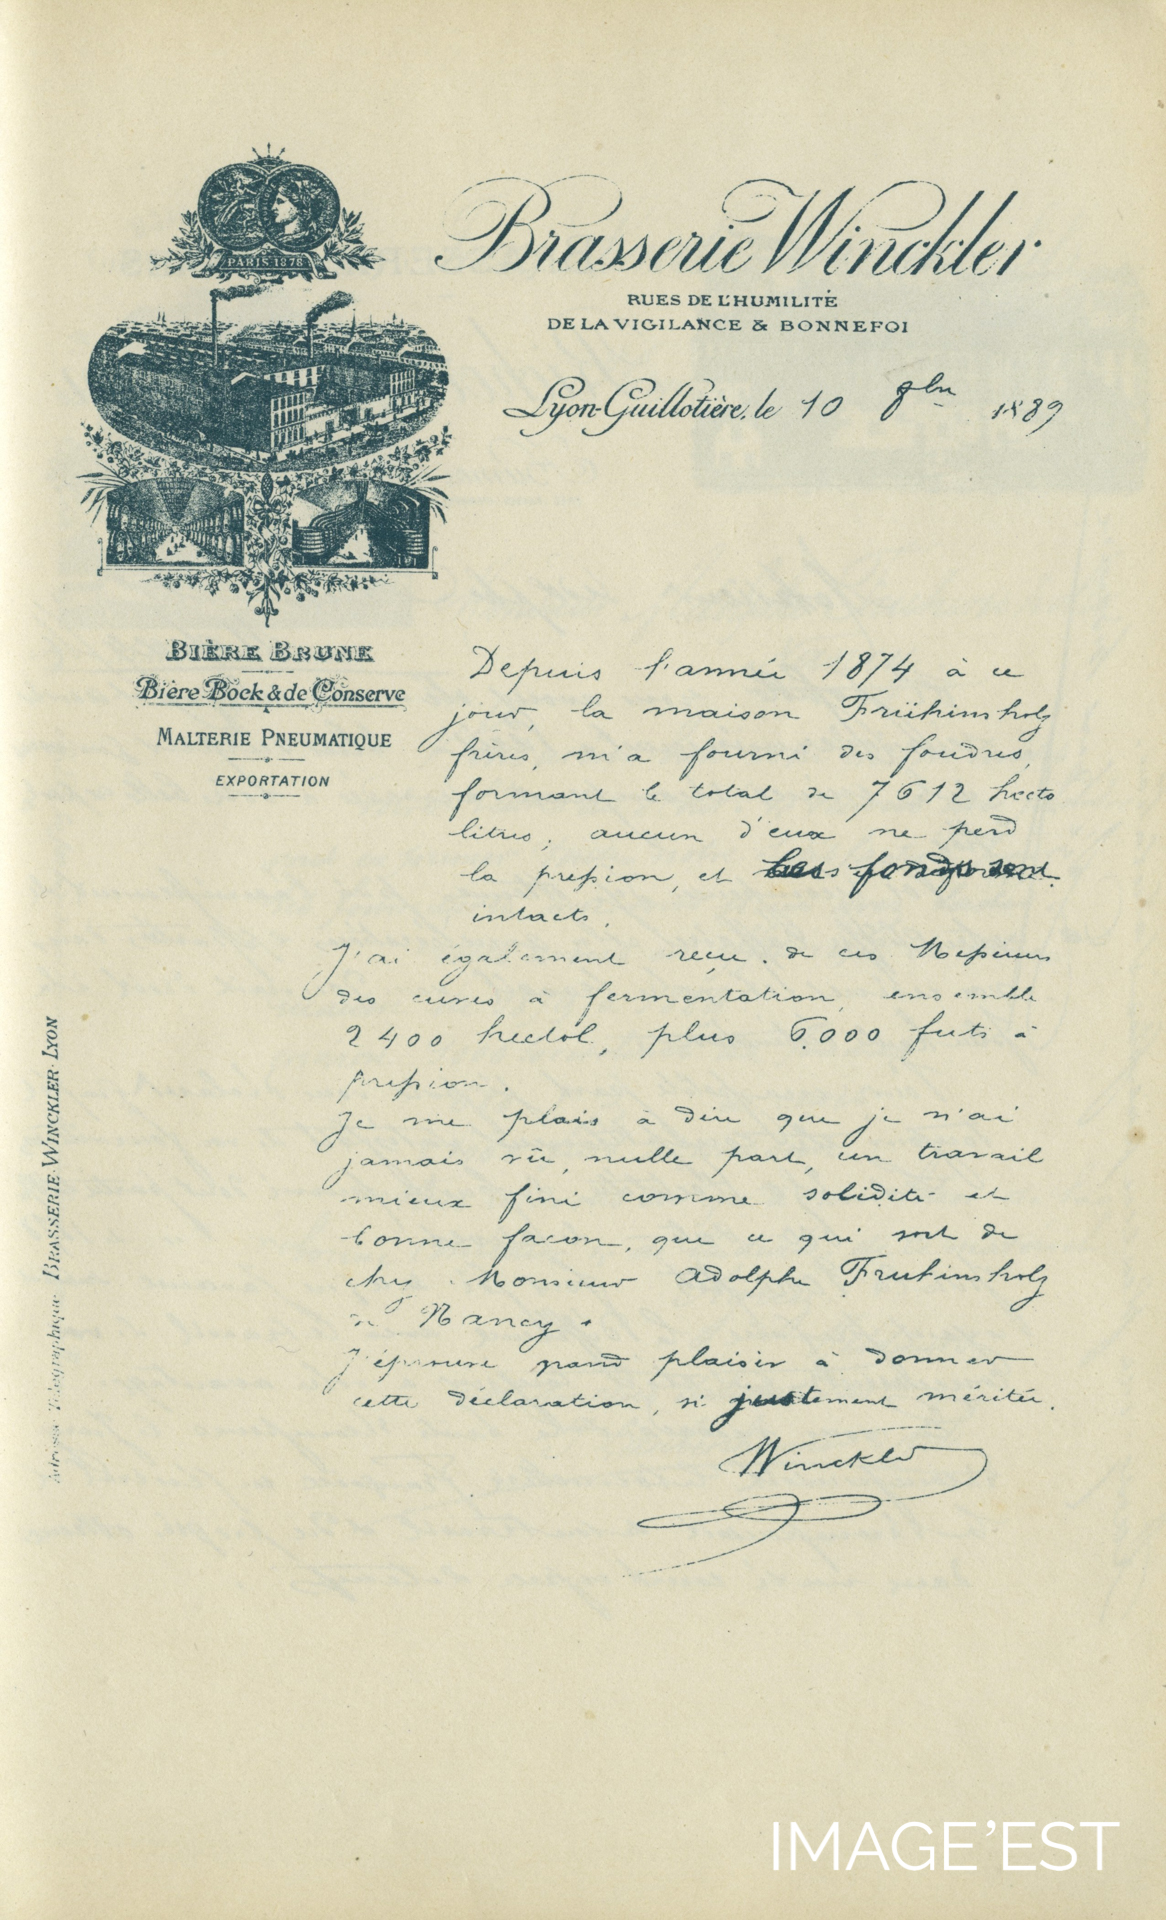 PARIS 1878
Brasserie Winckler
RUES DE L'HUMILITÉ
DE LA VIGILANCE & BONNEFOI
Lyon-Guillotière, le 10 8bre 1889
BIÈRE BRUNE
Bière Bock & de Conserve
MALTERIE PNEUMATIQUE
EXPORTATION
Depuis l'année 1874 à ce
jour, la maison Frühinsholz
frères, m'a fourni des foudres,
formant le total de 7612 hecto
litres, aucun d'eux ne perd
la pression, et les fonds sont
intacts.
J'ai également reçu de ces Messieurs
des cuves à fermentation, ensemble
2400 hectol, plus 6.000 futs à
pression.
Je me plais à dire que je n'ai
jamais vû, nulle part, un travail
mieux fini comme solidité et
bonne façon, que ce qui sort de
chez Monsieur Adolphe Fruhinsholz
Nancy.
J'éprouve grand plaisir à donner
cette déclaration, si justement méritée.
Winckler
Adresse Télégraphique BRASSERIE WINCKLER LYON
IMAGE'EST